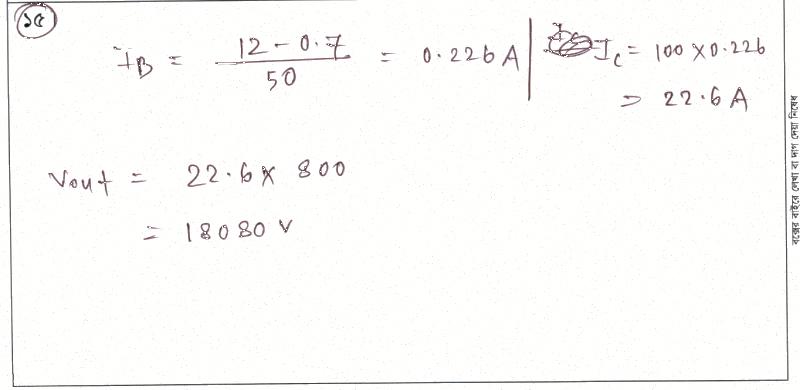 ১৫
I_B = (12 - 0.7) / 50 = 0.226 A | I_C = 100 X 0.226
= 22.6 A
Vout = 22.6 X 800
= 18080 V
বক্সের বাইরে লেখা বা দাগ দেয়া নিষেধ